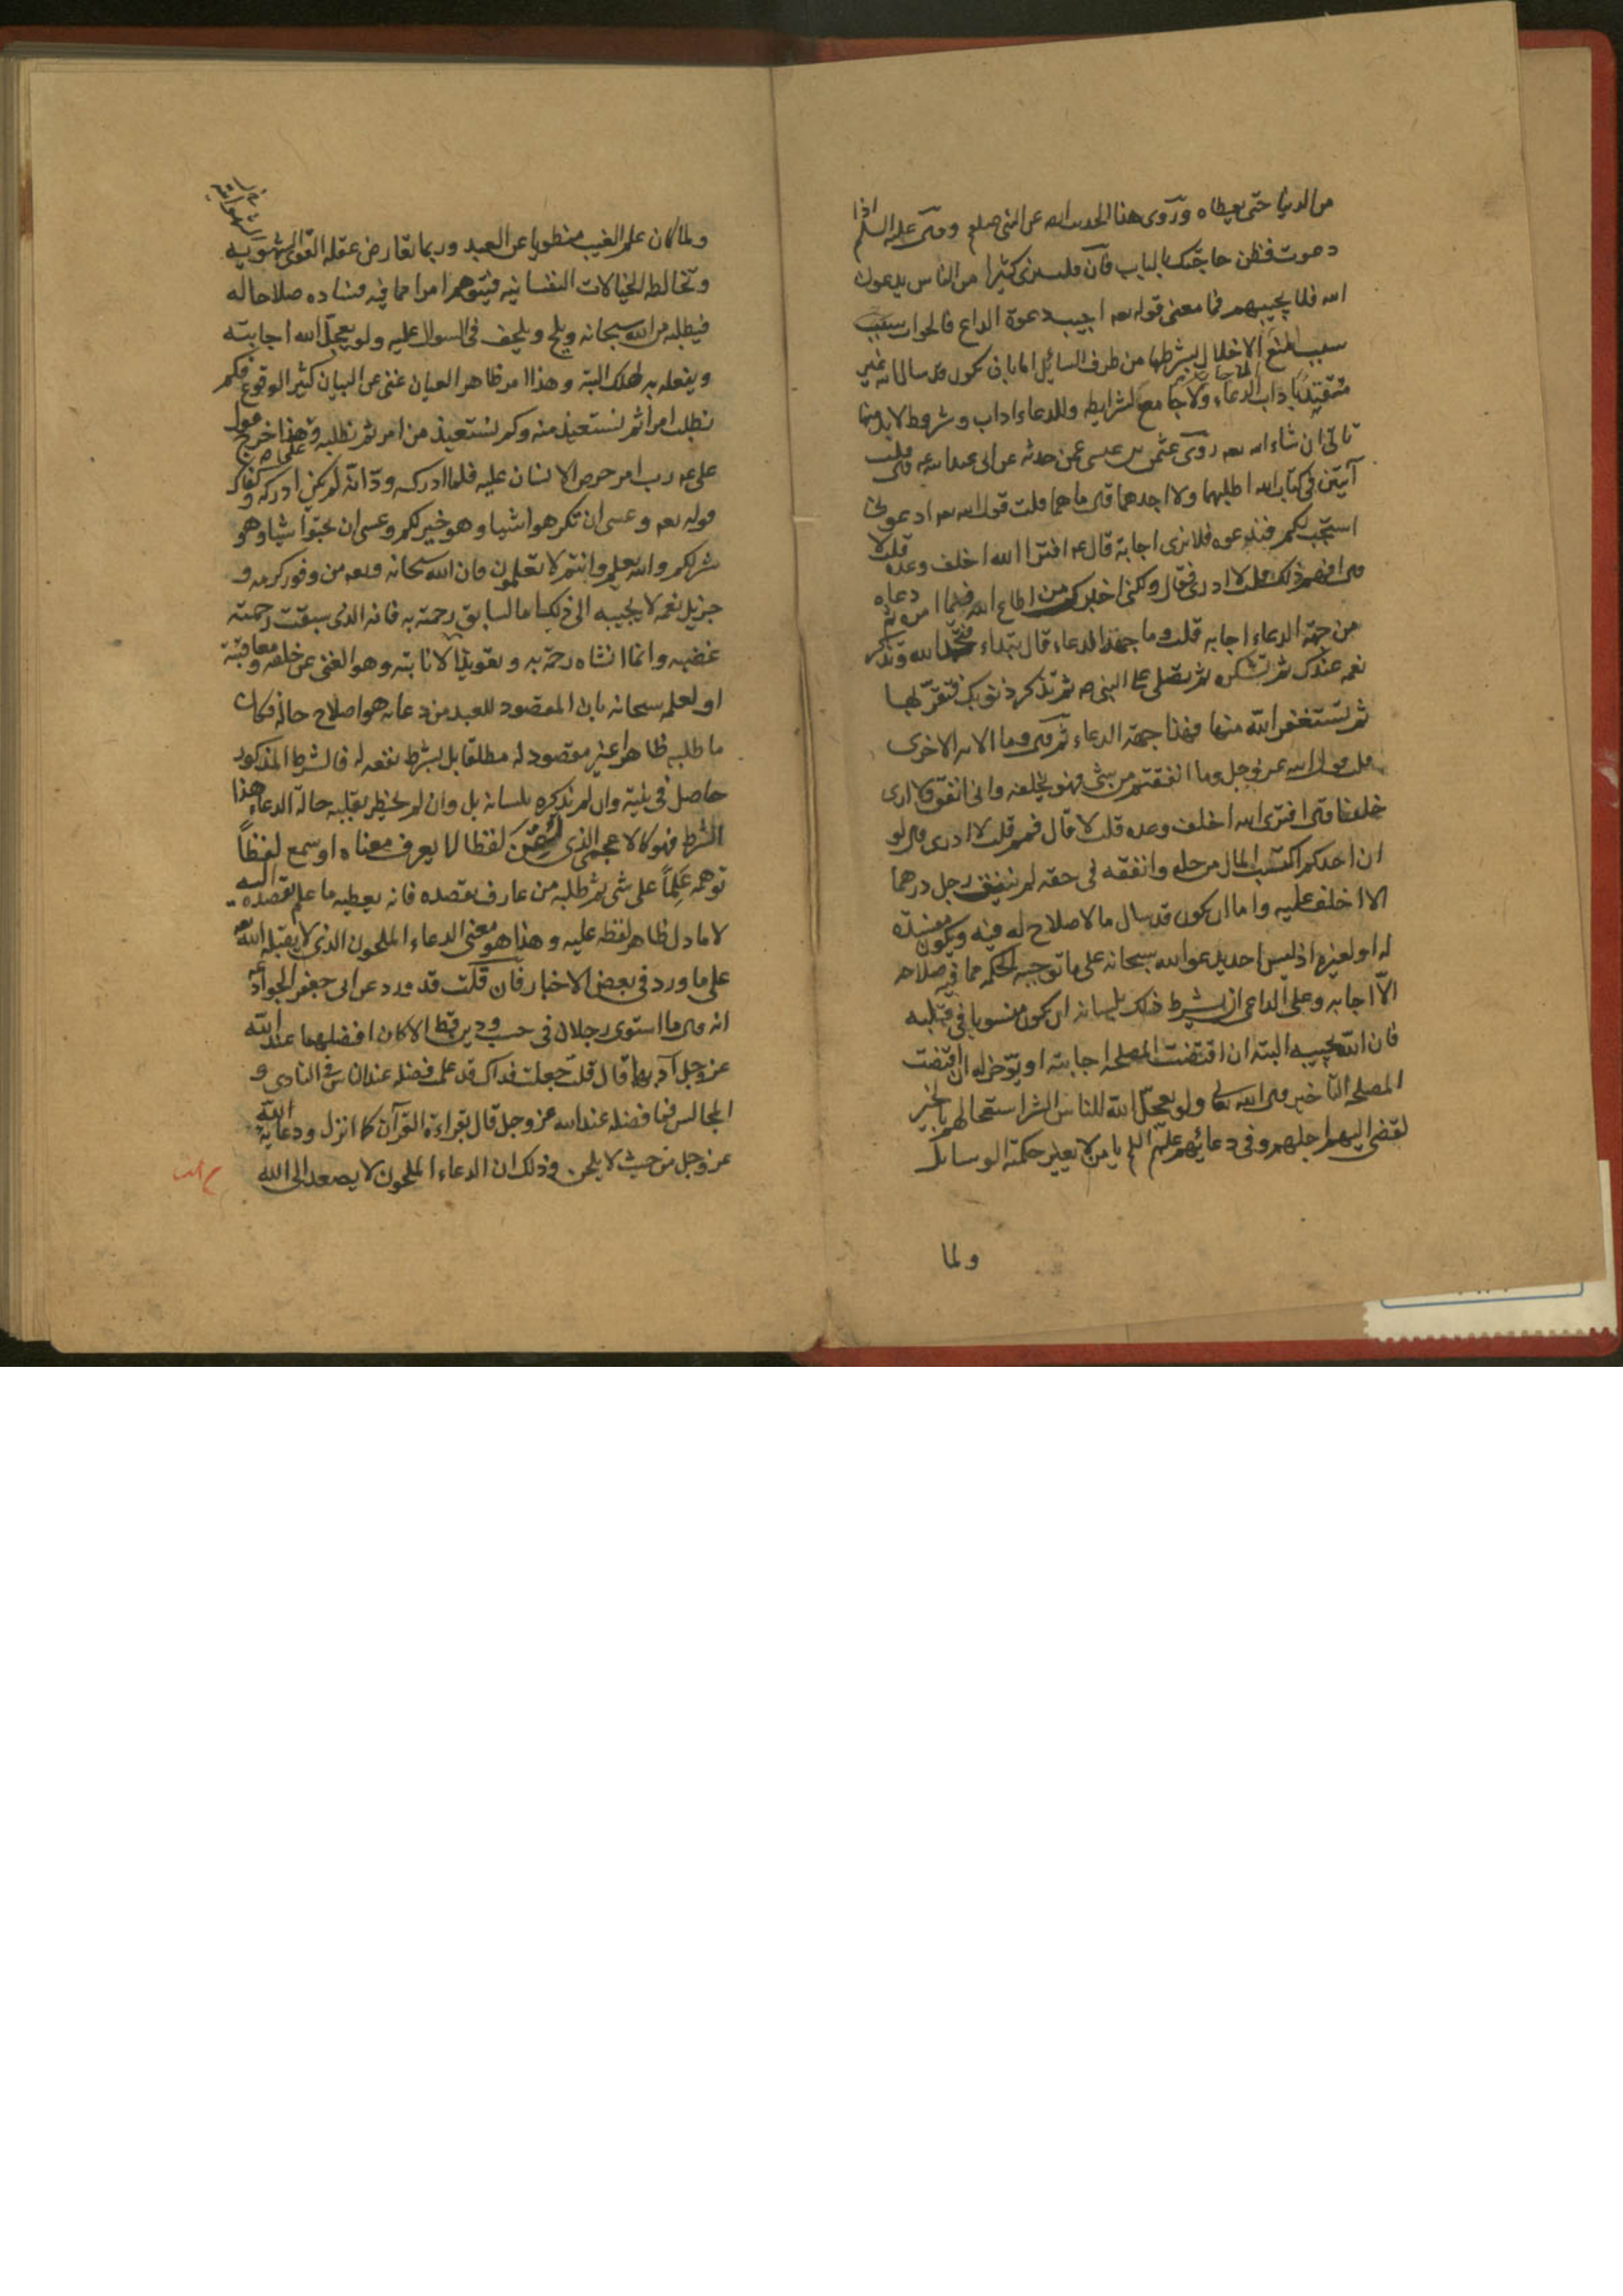 من الدنيا حتى يعطاه وروى هذا الحديث عن النبي صلعم وقال عليه السلم اذا
دعوت فظن حاجتك بالباب فان قلت نرى كثيرا من الناس يدعون
الله فلا يجيبهم فما معنى قوله تعه اجيب دعوة الداع فالجواب سبب
سبب المنع الاخلال بشرطها من طرف السائل اما بان يكون قد سال الله غير
متقيد باداب الدعاء ولا جامع لشرايطه وللدعاء اداب وشروط لابد منها
تاتى ان شاء الله تعه روى عثمن بن عيسى عمن حدثه عن ابى عبدالله ع قال قلت
آيتين فى كتاب الله اطلبهما ولا اجدهما قال ما هما قلت قول الله تعه ادعونى
استجب لكم فندعوه فلا نرى اجابة قال ع افترى الله اخلف وعده قلت لا
قال فمم ذلك قلت لا ادرى فقال ولكنى اخبرك من اطاع الله فيما امره ثم دعاه
من جهة الدعاء اجابه قلت وما جهة الدعاء قال تبتداء فتحمد الله وتذكر
نعمه عندك ثم تشكره ثم تصلى على النبى ص ثم تذكر ذنوبك فتقر بها
ثم تستغفر الله منها فهذا جهة الدعاء ثم قال وما الايه الاخرى
قلت قول الله عز وجل وما انفقتم من شئ فهو يخلفه وانى انفق ولا ارى
خلفا قال افترى الله اخلف وعده قلت لا قال فمم قلت لا ادرى قال لو
ان احدكم اكتسب المال من حله وانفقه فى حقه لم ينفق رجل درهما
الا اخلف عليه واما ان يكون قد سال ما لا صلاح له فيه ويكون مفسدة
له او لغيره اذ ليس احد يدعو الله سبحانه على ما توجبه الحكمه مما فيه صلاحه
الا اجابه وعلى الداعى ان يشترط ذلك بلسانه او يكون منويا فى قلبه
فان الله يجيبه البته ان اقتضت المصلحه اجابته او يؤخر له ان اقتضت
المصلحه التاخير قال الله تعالى ولو يعجل الله للناس الشر استعجالهم بالخير
لقضى اليهم اجلهم وفى دعائهم عليهم السلم يا من لا يغير حكمته الوسائل
ولما
ولما كان علم الغيب منطويا عن العبد وربما تعارض عقله القوى الشهويه
وتخالطه الخيالات النفسانيه فيتوهم امرا مما فيه فساده صلاحا له
فيطلبه من الله سبحانه ويلح ويلحف فى السوال عليه ولو يعجل الله اجابته
ويفعله به لهلك البتة وهذا امر ظاهر العيان غنى عن البيان كثير الوقوع فكم
نطلب امرا ثم نستعيذ منه وكم نستعيذ من امر ثم نطلبه وعلى هذا خرج قول
على ع رب امر حرص الانسان عليه فلما ادركه ود انه لم يكن ادركه وكفاك
قوله تعه وعسى ان تكرهوا شيا وهو خير لكم وعسى ان تحبوا شيا وهو
شر لكم والله يعلم وانتم لا تعلمون فان الله سبحانه وتعه من وفور كرمه و
جزيل نعمه لا يجيبه الى ذلك اما لسابق رحمته به فانه الذى سبقت رحمته
غضبه وانما انشاه رحمة به وتعويضا لاثابته وهو الغنى عن خلقه ومعاقبته
او لعلمه سبحانه بان المقصود للعبد من دعائه هو اصلاح حاله فكان
ما طلبه ظاهرا غير مقصود له مطلقا بل بشرط نفعه له فالشرط المذكور
حاصل فى نيته وان لم يذكره بلسانه بل وان لم يخطر بقلبه حالة الدعاء هذا
الشرط فهو كالاعجمى الذى لقن لفظا لا يعرف معناه او سمع لفظا
توهمه علما على شى ثم طلبه من عارف بقصده فانه يعطيه ما علم قصده اليه
لا ما دل ظاهر لفظه عليه وهذا هو معنى الدعاء الملحون الذى لا يقبله الله تعه
على ما ورد فى بعض الاخبار فان قلت قد ورد عن ابى جعفر الجواد ع
انه قال ما استوى رجلان فى حسب ودين قط الا كان افضلهما عند الله
عز وجل آدبهما قال قلت جعلت فداك قد علمت فضله عند الناس فى النادى و
المجالس فما فضله عند الله عز وجل قال بقراءة القرآن كما انزل ودعائه الله
عز وجل من حيث لا يلحن وذلك ان الدعاء الملحون لا يصعد الى الله